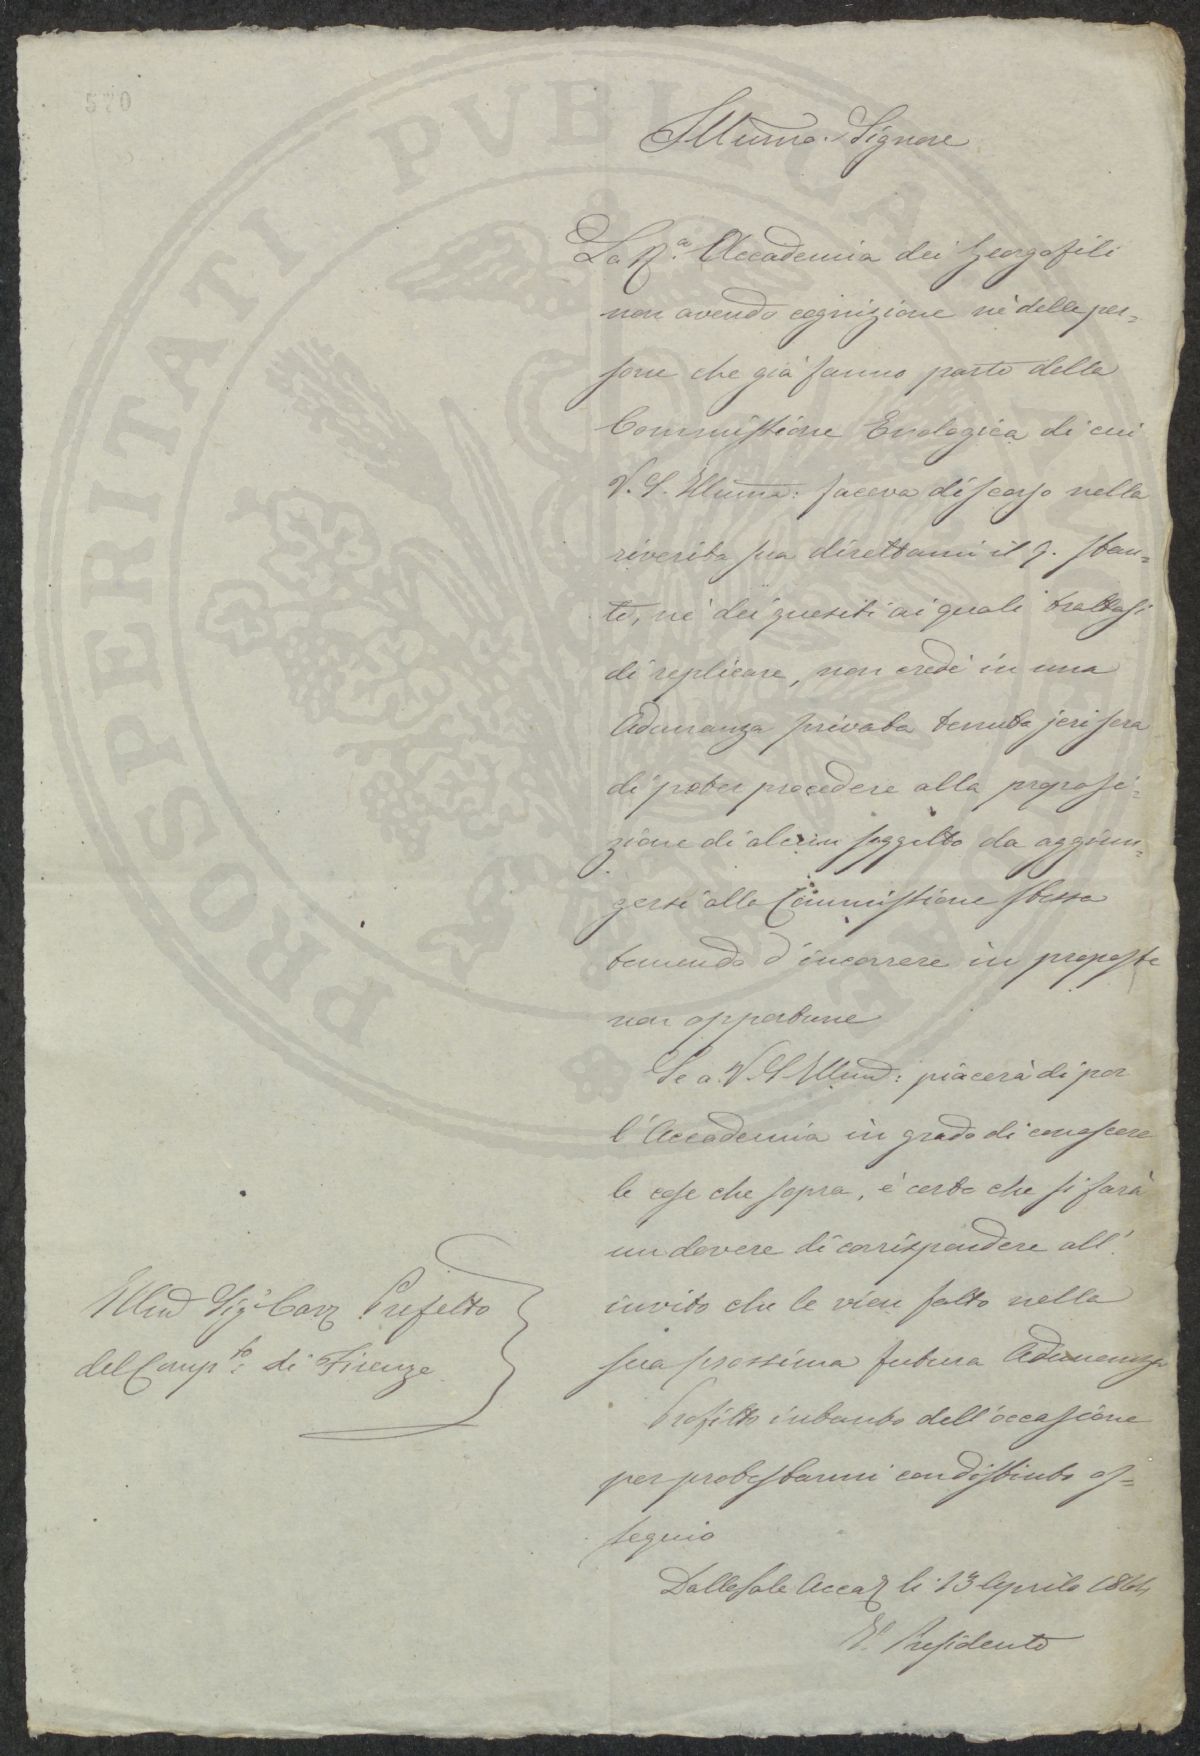 570
Illumo: Signore
La R.a Accademia dei Georgofili
non avendo cognizione nè delle per=
sone che già fanno parte della
Commissione Enologica di cui
V. S. Illuma: faceva discorso nella
riverita sua direttami il 9. stan=
te, nè dei quesiti ai quali trattasi
di replicare, non credè in una
Adunanza privata tenuta jeri sera
di poter procedere alla proposi=
zione di alcun soggetto da aggiun=
gersi alla Commissione stessa
temendo d'incorrere in proposte
non opportune
Se a V. S. Illma: piacerà di por
l'Accademia in grado di conoscere
le cose che sopra, è certo che si farà
un dovere di corrispondere all'
invito che le vien fatto nella
sua prossima futura Adunanza
Profitto intanto dell'occasione
per protestarmi con distinto os=
sequio
Dalle Sale Accad li 13 Aprile 1864
Il Presidente
Illmo Sigr Cav Prefetto
del Compto: di Firenze
PROSPERITATI PVBLICAE AVGENDAE